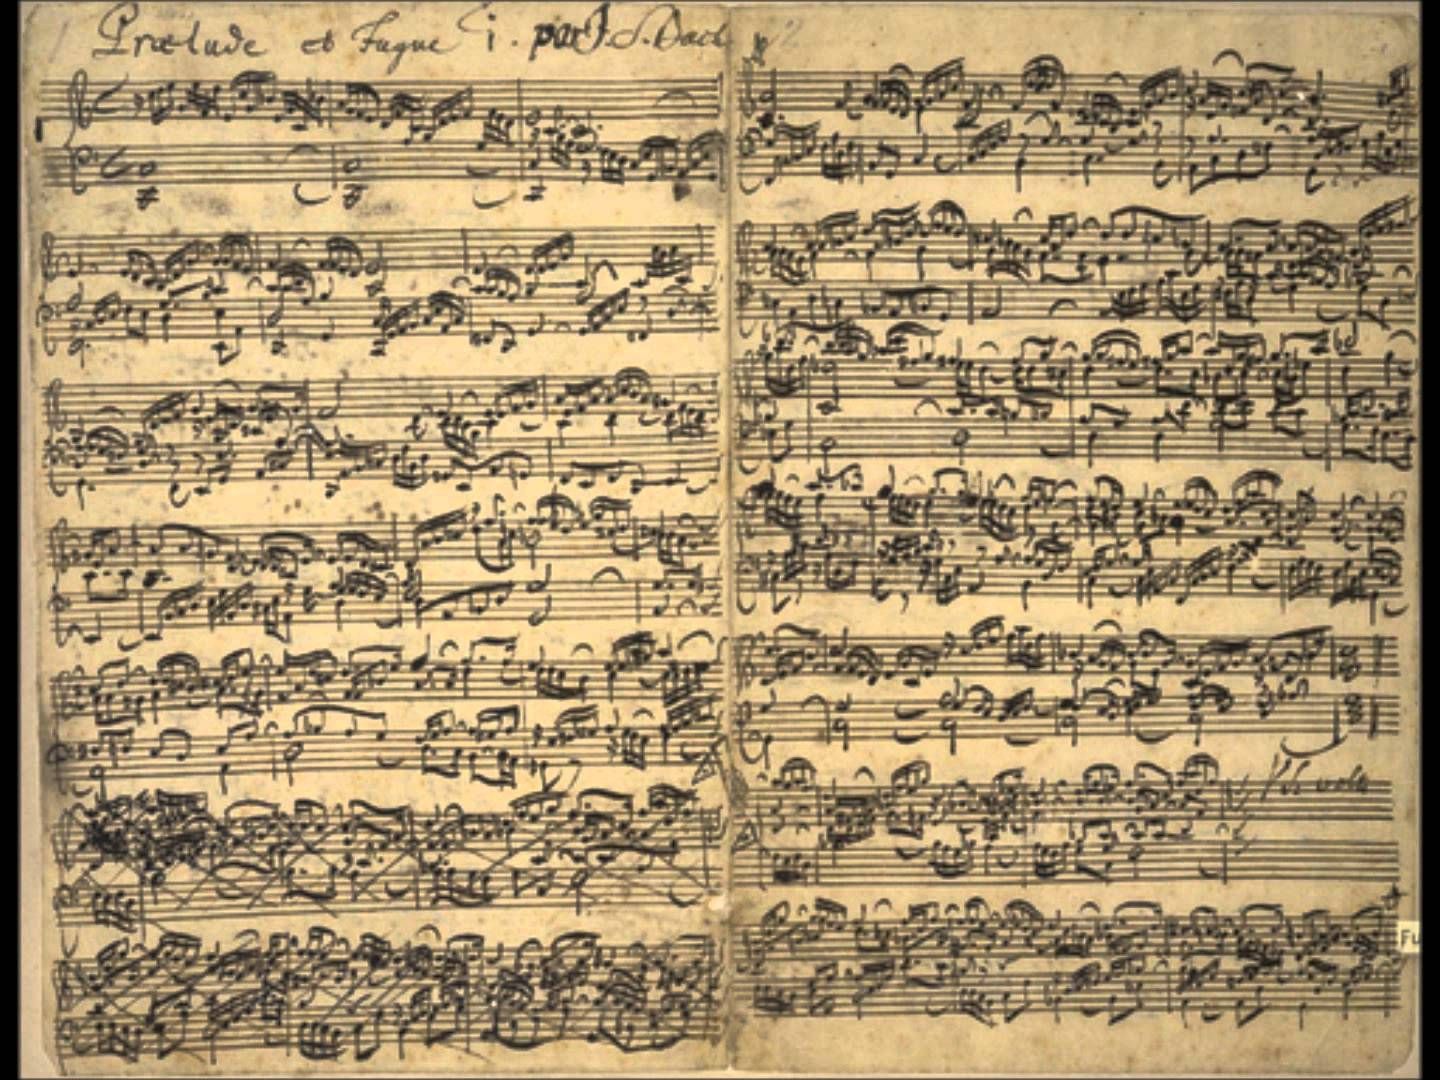 Prælude et Fugue i. par J. S. Bach
2
Fu